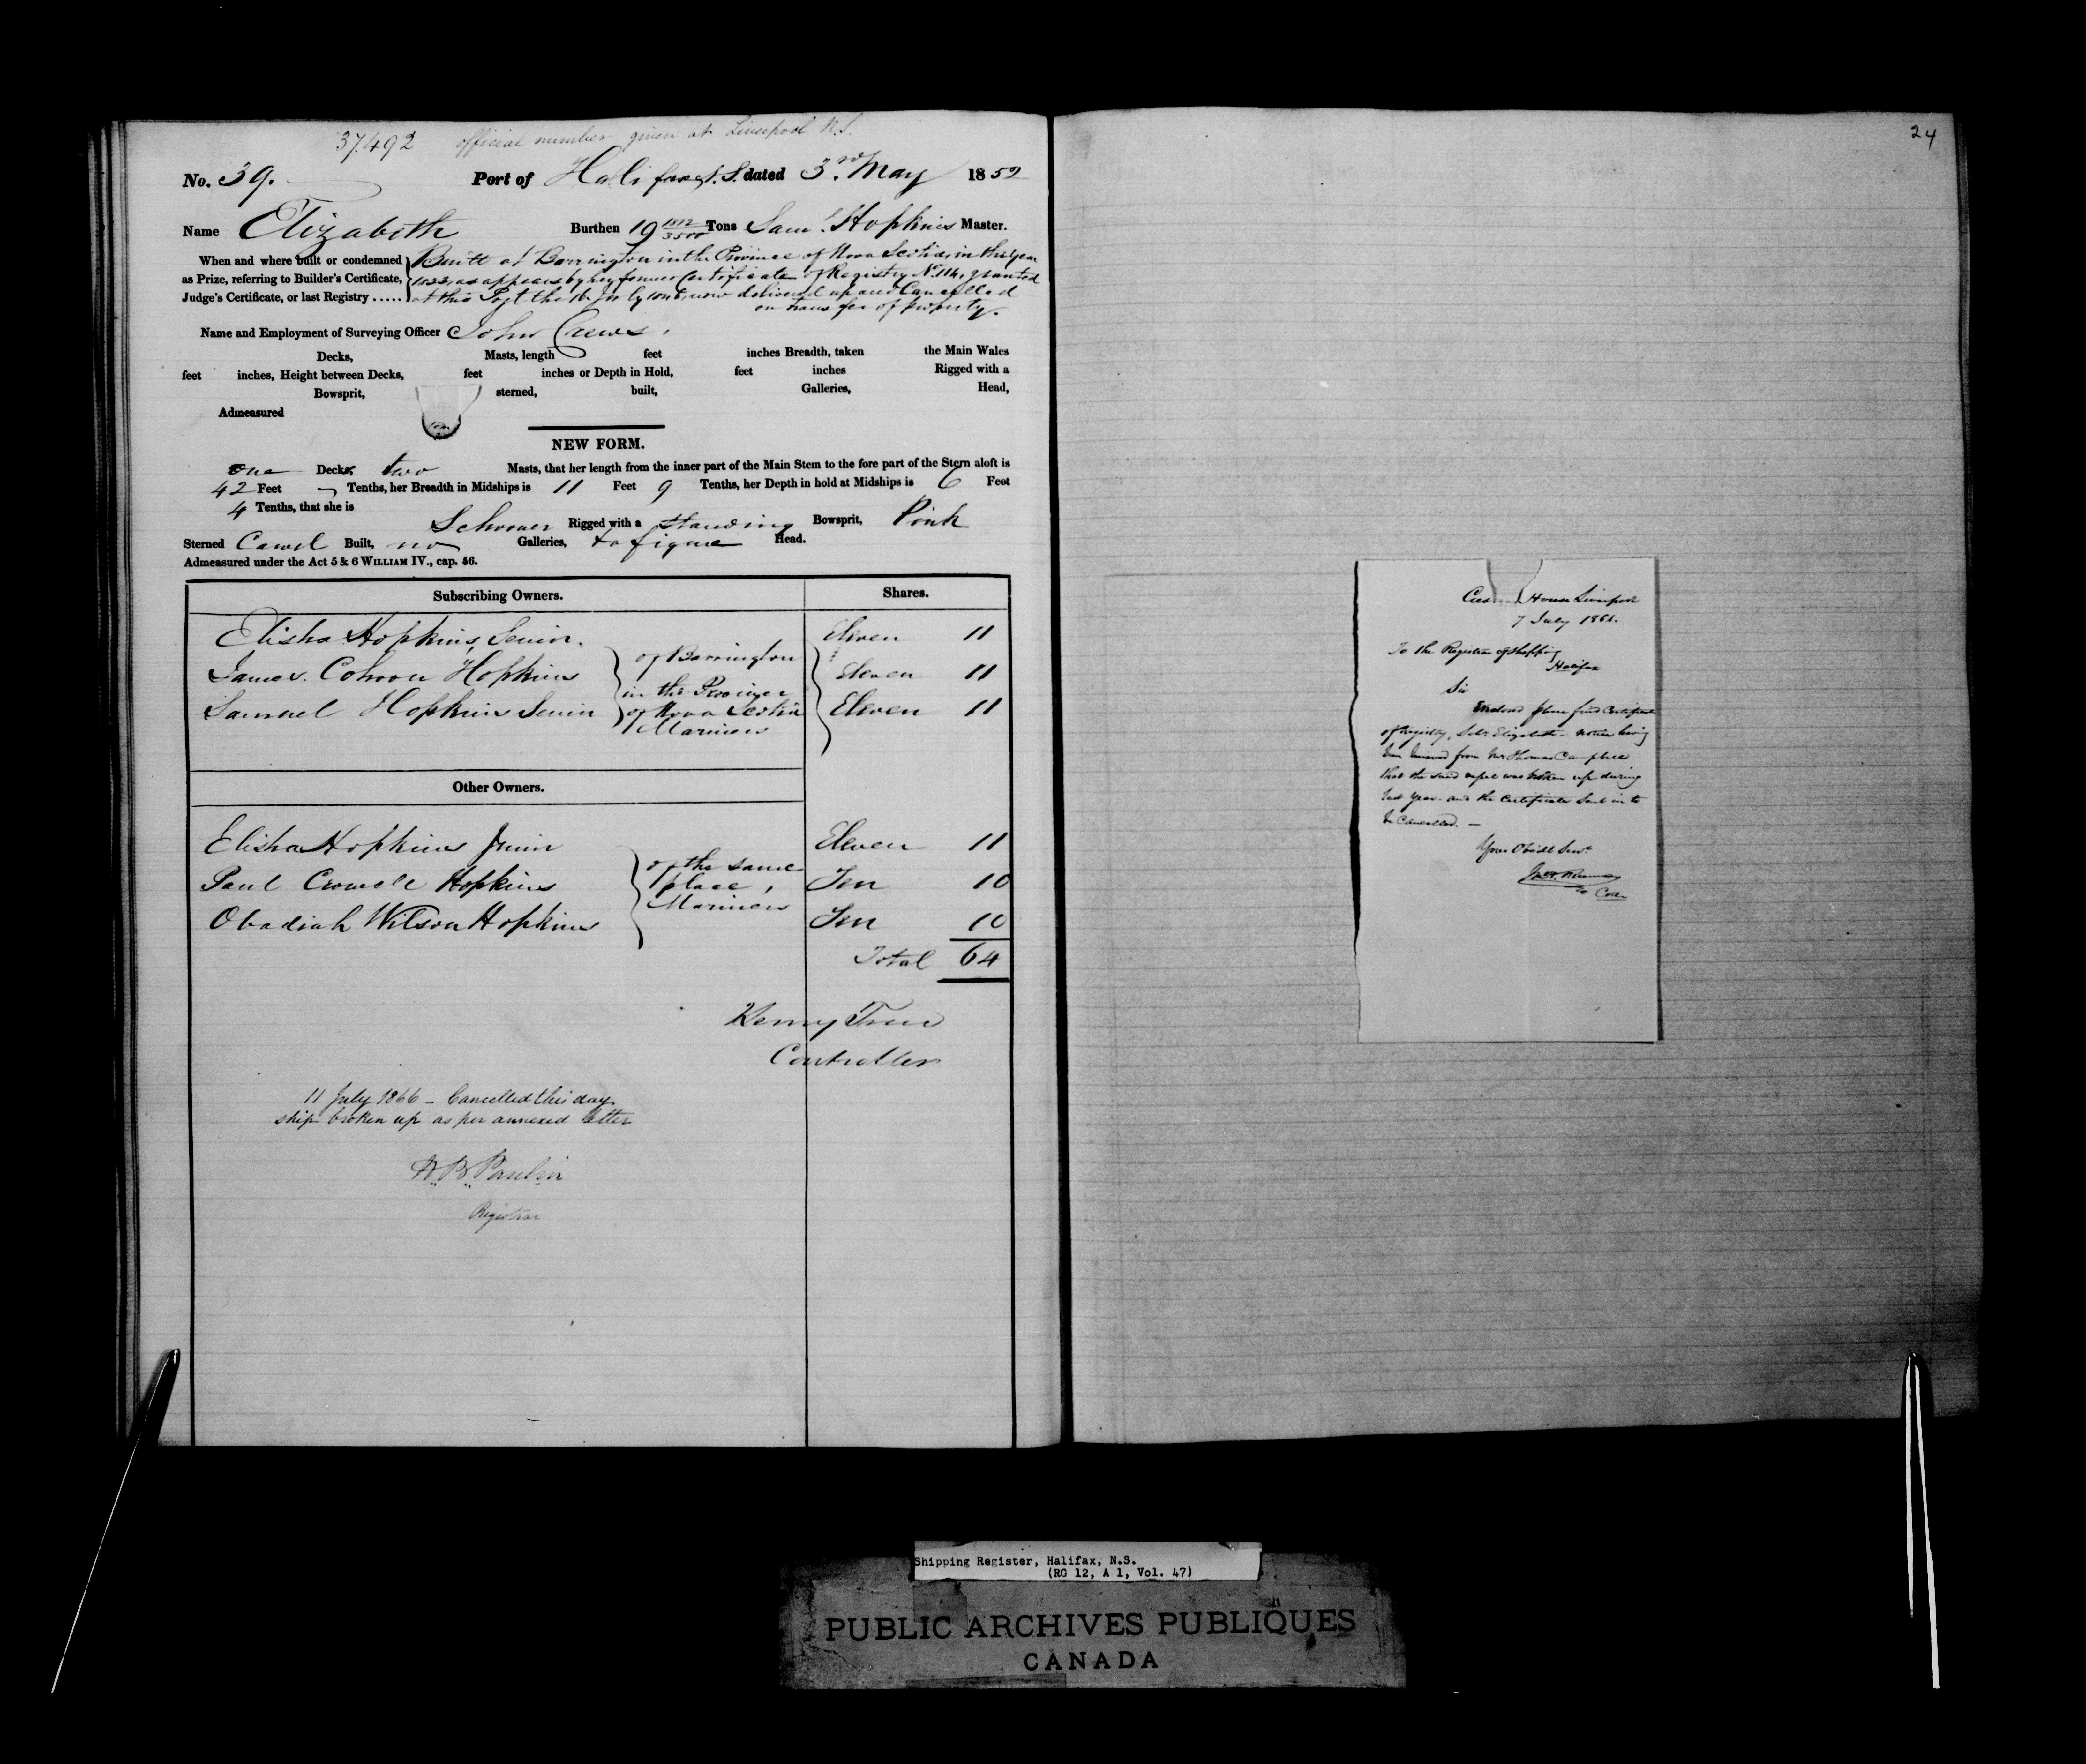 37,492 official number given at Liverpool N.S.
No. 39. Port of Halifax N.S. dated 3rd May 1852
Name Elizabeth Burthen 19 Tons Saml. Hopkins Master.
When and where built or condemned
as Prize, referring to Builder's Certificate,
Judge's Certificate, or last Registry .....
Built at Barrington in the Province of Nova Scotia, in the year
as appears by her former Certificate of Registry No. 114, granted
at this Port the July now delivered up and Cancelled
on transfer of property.
Name and Employment of Surveying Officer John Crews.
Decks, Masts, length feet inches Breadth, taken the Main Wales
feet inches, Height between Decks, feet inches or Depth in Hold, feet inches Rigged with a
Bowsprit, sterned, built, Galleries, Head,
Admeasured
NEW FORM.
one Deck, two Masts, that her length from the inner part of the Main Stem to the fore part of the Stern aloft is
42 Feet Tenths, her Breadth in Midships is 11 Feet 9 Tenths, her Depth in hold at Midships is 6 Feet
4 Tenths, that she is
Schooner Rigged with a standing Bowsprit, Pink
Sterned Carvel Built, no Galleries, figure Head.
Admeasured under the Act 5 & 6 WILLIAM IV., cap. 56.
Subscribing Owners. Shares.
Elisha Hopkins, Senior. Eleven 11
James Cohoon Hopkins Eleven 11
Samuel Hopkins Senior Eleven 11
of Barrington
in the Province
of Nova Scotia
Mariners
Other Owners.
Elisha Hopkins Junior Eleven 11
Paul Crowell Hopkins Ten 10
Obadiah Wilson Hopkins Ten 10
of the same
place,
Mariners
Total 64
Henry Trew
Controller
11 July 1866 - Cancelled this day
ship broken up as per annexed letter
H. B. Paulin
Registrar
24
Custom House Liverpool
7 July 1866.
To the Registrar of Shipping
Halifax
Sir
Enclosed please find Certificate
of Registry, Schr. Elizabeth - notice having
been received from Mr Thomas Campbell
that the said vessel was broken up during
last year - and the Certificate sent in to
be Cancelled. -
Your Obedt Servt
Shipping Register, Halifax, N.S.
(RG 12, A 1, Vol. 47)
PUBLIC ARCHIVES PUBLIQUES
CANADA